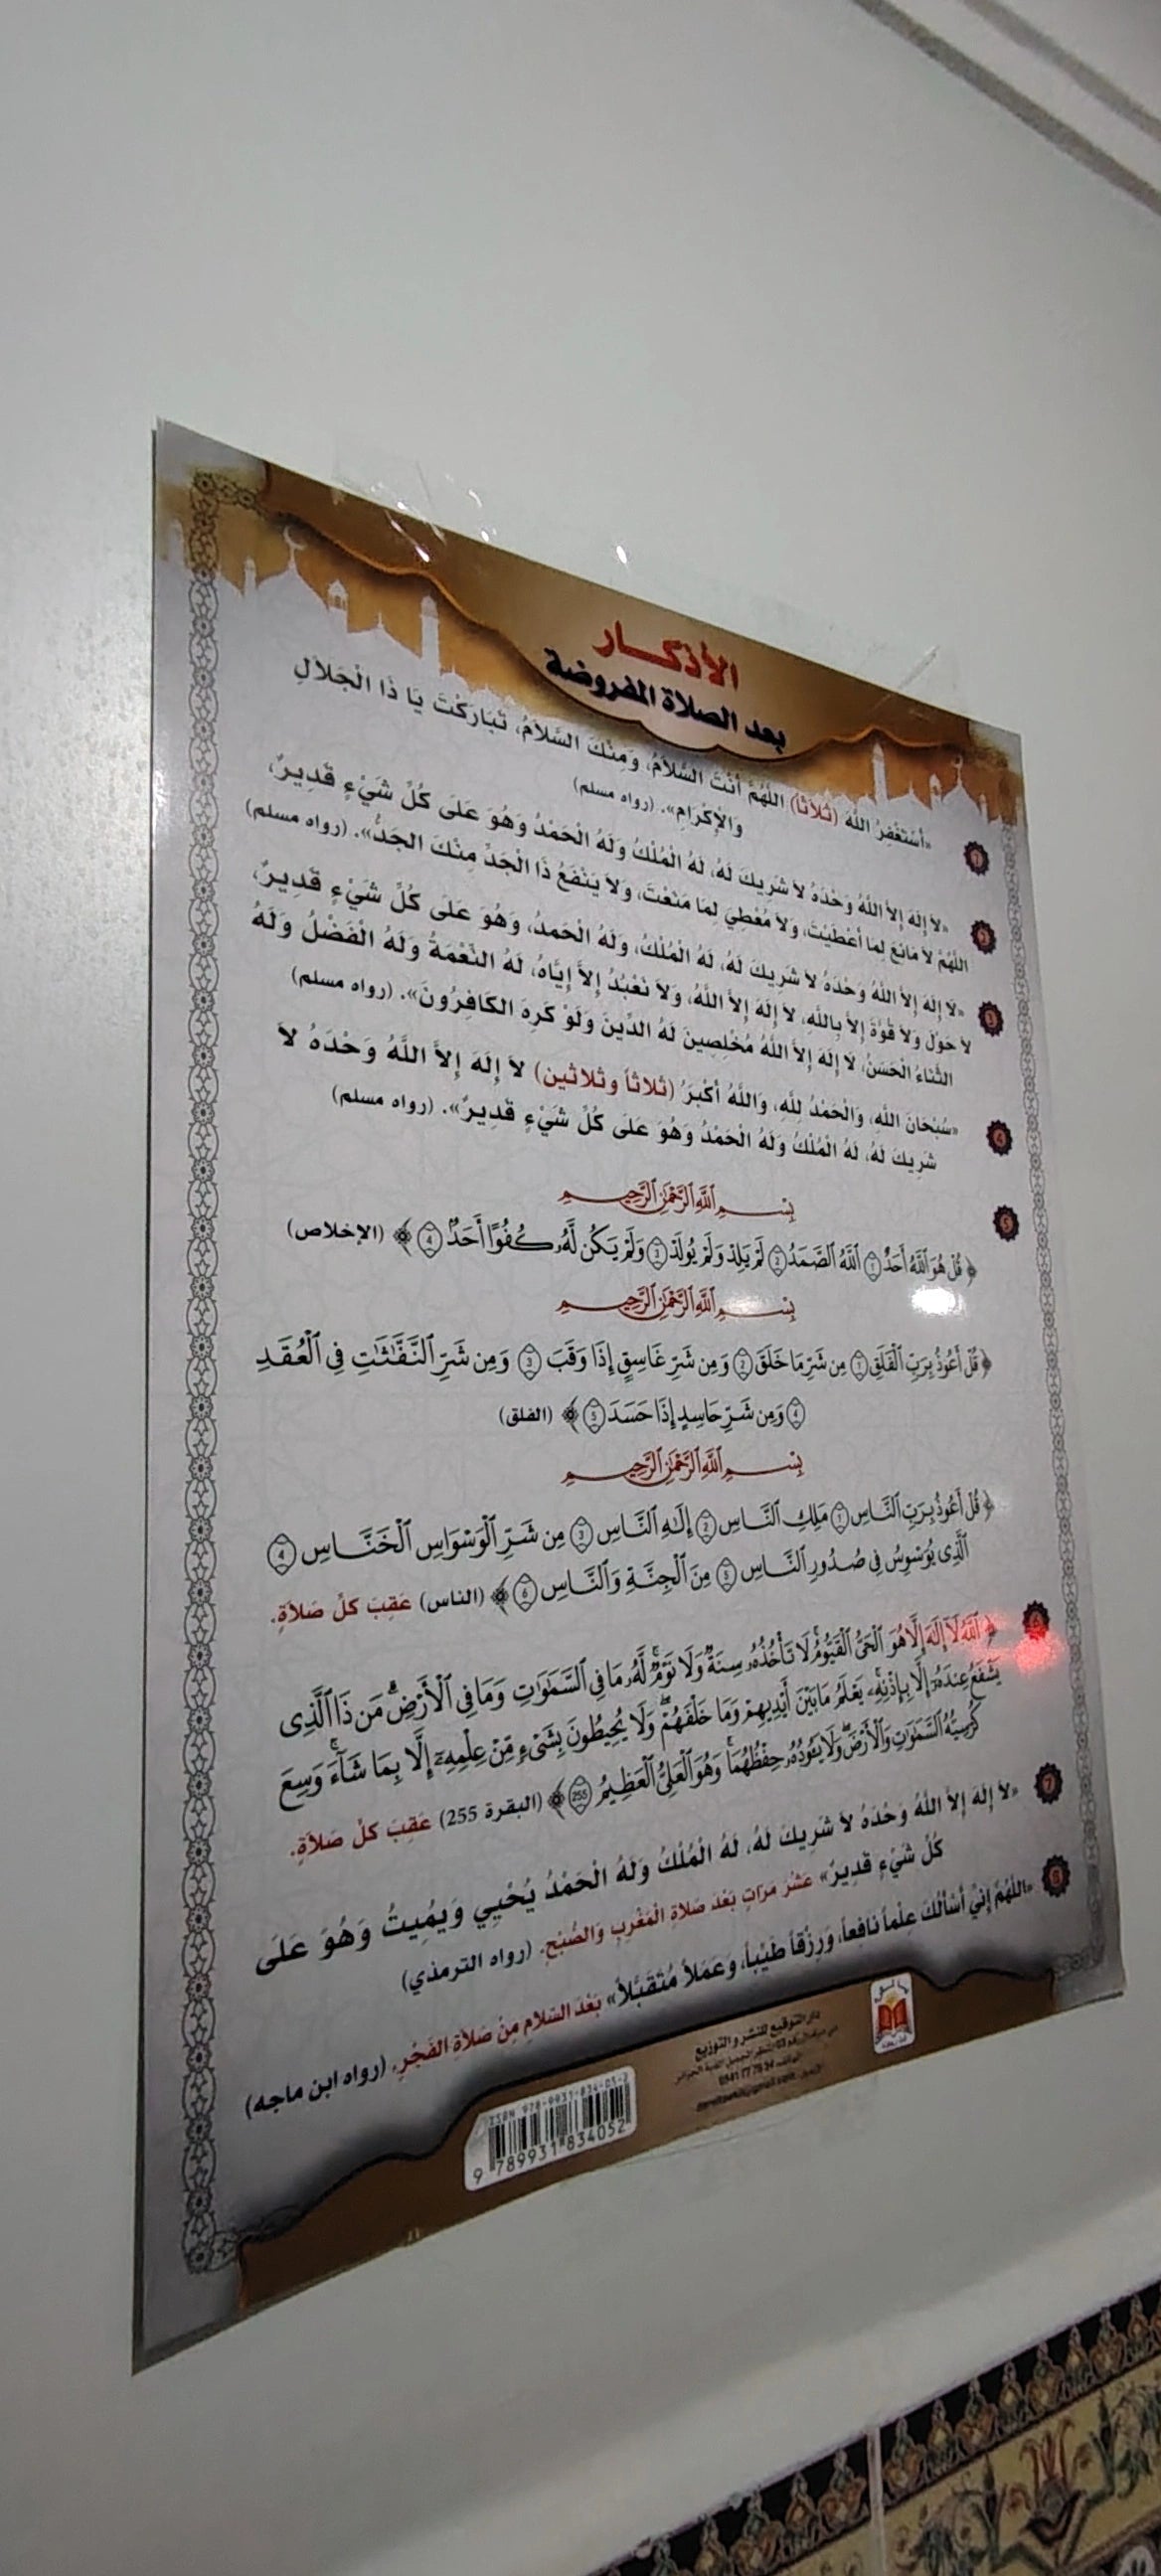 الأذكار
بعد الصلاة المفروضة
1 «أَسْتَغْفِرُ اللَّهَ (ثَلَاثاً) اللَّهُمَّ أَنْتَ السَّلاَمُ، وَمِنْكَ السَّلاَمُ، تَبَارَكْتَ يَا ذَا الْجَلاَلِ
وَالإِكْرَامِ». (رواه مسلم)
2 «لاَ إِلَهَ إِلاَّ اللَّهُ وَحْدَهُ لاَ شَرِيكَ لَهُ، لَهُ الْمُلْكُ وَلَهُ الْحَمْدُ وَهُوَ عَلَى كُلِّ شَيْءٍ قَدِيرٌ،
اللَّهُمَّ لاَ مَانِعَ لِمَا أَعْطَيْتَ، وَلاَ مُعْطِيَ لِمَا مَنَعْتَ، وَلاَ يَنْفَعُ ذَا الْجَدِّ مِنْكَ الجَدُّ». (رواه مسلم)
3 «لاَ إِلَهَ إِلاَّ اللَّهُ وَحْدَهُ لاَ شَرِيكَ لَهُ، لَهُ الْمُلْكُ، وَلَهُ الْحَمدُ، وَهُوَ عَلَى كُلِّ شَيْءٍ قَدِيرٌ،
لاَ حَوْلَ وَلاَ قُوَّةَ إِلاَّ بِاللَّهِ، لاَ إِلَهَ إِلاَّ اللَّهُ، وَلاَ نَعْبُدُ إِلاَّ إِيَّاهُ، لَهُ النِّعْمَةُ وَلَهُ الْفَضْلُ وَلَهُ
الثَّنَاءُ الْحَسَنُ، لاَ إِلَهَ إِلاَّ اللَّهُ مُخْلِصِينَ لَهُ الدِّينَ وَلَوْ كَرِهَ الكَافِرُونَ». (رواه مسلم)
4 «سُبْحَانَ اللَّهِ، وَالْحَمْدُ لِلَّهِ، وَاللَّهُ أَكْبَرُ (ثلاثاً وثلاثين) لاَ إِلَهَ إِلاَّ اللَّهُ وَحْدَهُ لاَ
شَرِيكَ لَهُ، لَهُ الْمُلْكُ وَلَهُ الْحَمْدُ وَهُوَ عَلَى كُلِّ شَيْءٍ قَدِيرٌ». (رواه مسلم)
بِسْمِ اللَّهِ الرَّحْمَٰنِ الرَّحِيمِ
5 ﴿قُلْ هُوَ ٱللَّهُ أَحَدٌ 1 ٱللَّهُ ٱلصَّمَدُ 2 لَمْ يَلِدْ وَلَمْ يُولَدْ 3 وَلَمْ يَكُن لَّهُۥ كُفُوًا أَحَدٌۢ 4﴾ (الإخلاص)
بِسْمِ اللَّهِ الرَّحْمَٰنِ الرَّحِيمِ
﴿قُلْ أَعُوذُ بِرَبِّ ٱلْفَلَقِ 1 مِن شَرِّ مَا خَلَقَ 2 وَمِن شَرِّ غَاسِقٍ إِذَا وَقَبَ 3 وَمِن شَرِّ ٱلنَّفَّٰثَٰتِ فِى ٱلْعُقَدِ
4 وَمِن شَرِّ حَاسِدٍ إِذَا حَسَدَ 5﴾ (الفلق)
بِسْمِ اللَّهِ الرَّحْمَٰنِ الرَّحِيمِ
﴿قُلْ أَعُوذُ بِرَبِّ ٱلنَّاسِ 1 مَلِكِ ٱلنَّاسِ 2 إِلَٰهِ ٱلنَّاسِ 3 مِن شَرِّ ٱلْوَسْوَاسِ ٱلْخَنَّاسِ 4
ٱلَّذِى يُوَسْوِسُ فِى صُدُورِ ٱلنَّاسِ 5 مِنَ ٱلْجِنَّةِ وَٱلنَّاسِ 6﴾ (الناس) عَقِبَ كلِّ صَلاَةٍ.
6 ﴿ٱللَّهُ لَآ إِلَٰهَ إِلَّا هُوَ ٱلْحَىُّ ٱلْقَيُّومُ ۚ لَا تَأْخُذُهُۥ سِنَةٌ وَلَا نَوْمٌ ۚ لَّهُۥ مَا فِى ٱلسَّمَٰوَٰتِ وَمَا فِى ٱلْأَرْضِ ۗ مَن ذَا ٱلَّذِى
يَشْفَعُ عِندَهُۥٓ إِلَّا بِإِذْنِهِۦ ۚ يَعْلَمُ مَا بَيْنَ أَيْدِيهِمْ وَمَا خَلْفَهُمْ ۖ وَلَا يُحِيطُونَ بِشَىْءٍ مِّنْ عِلْمِهِۦٓ إِلَّا بِمَا شَآءَ ۚ وَسِعَ
كُرْسِيُّهُ ٱلسَّمَٰوَٰتِ وَٱلْأَرْضَ ۖ وَلَا يَـُٔودُهُۥ حِفْظُهُمَا ۚ وَهُوَ ٱلْعَلِىُّ ٱلْعَظِيمُ 255﴾ (البقرة 255) عَقِبَ كلِّ صَلاَةٍ.
7 «لاَ إِلَهَ إِلاَّ اللَّهُ وَحْدَهُ لاَ شَرِيكَ لَهُ، لَهُ الْمُلْكُ وَلَهُ الْحَمْدُ يُحْيِي وَيُمِيتُ وَهُوَ عَلَى
كُلِّ شَيْءٍ قَدِيرٌ» عَشْرَ مَرَّاتٍ بَعْدَ صَلاَةِ الْمَغْرِبِ وَالصُّبْحِ. (رواه الترمذي)
8 «اللَّهُمَّ إِنِّي أَسْأَلُكَ عِلْماً نَافِعاً، وَرِزْقاً طَيِّباً، وَعَمَلاً مُتَقَبَّلاً» بَعْدَ السَّلاَمِ مِنْ صَلاَةِ الفَجْرِ. (رواه ابن ماجه)
دار التوقيع للنشر والتوزيع
ISBN 978-9931-834-05-2
9 789931 834052